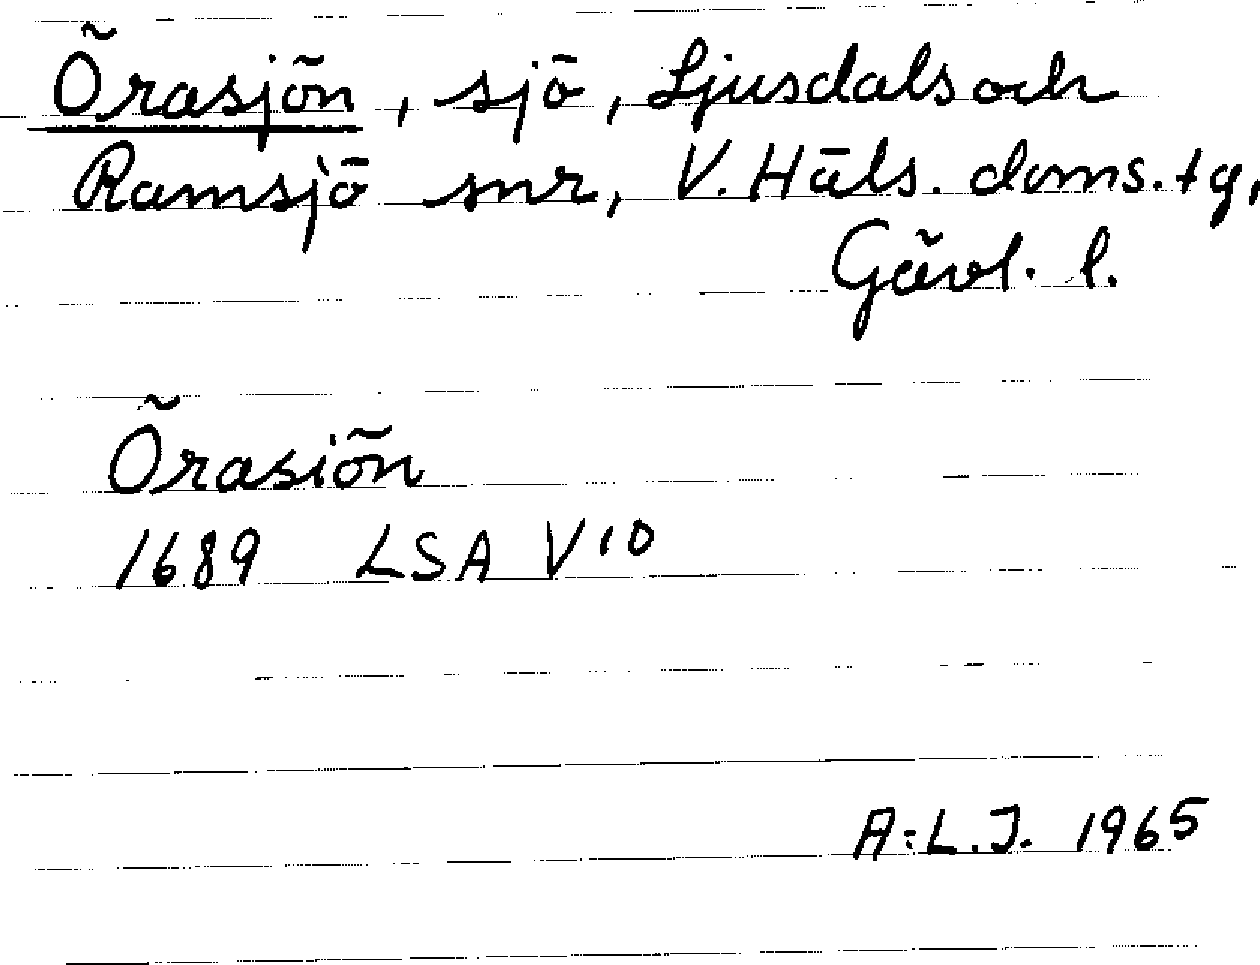 Örasjön, sjö, Ljusdals och
Ramsjö snr, V. Häls. doms. tg,
Gävl. l.
Örasiön
1689 LSA V10
A-L.J. 1965